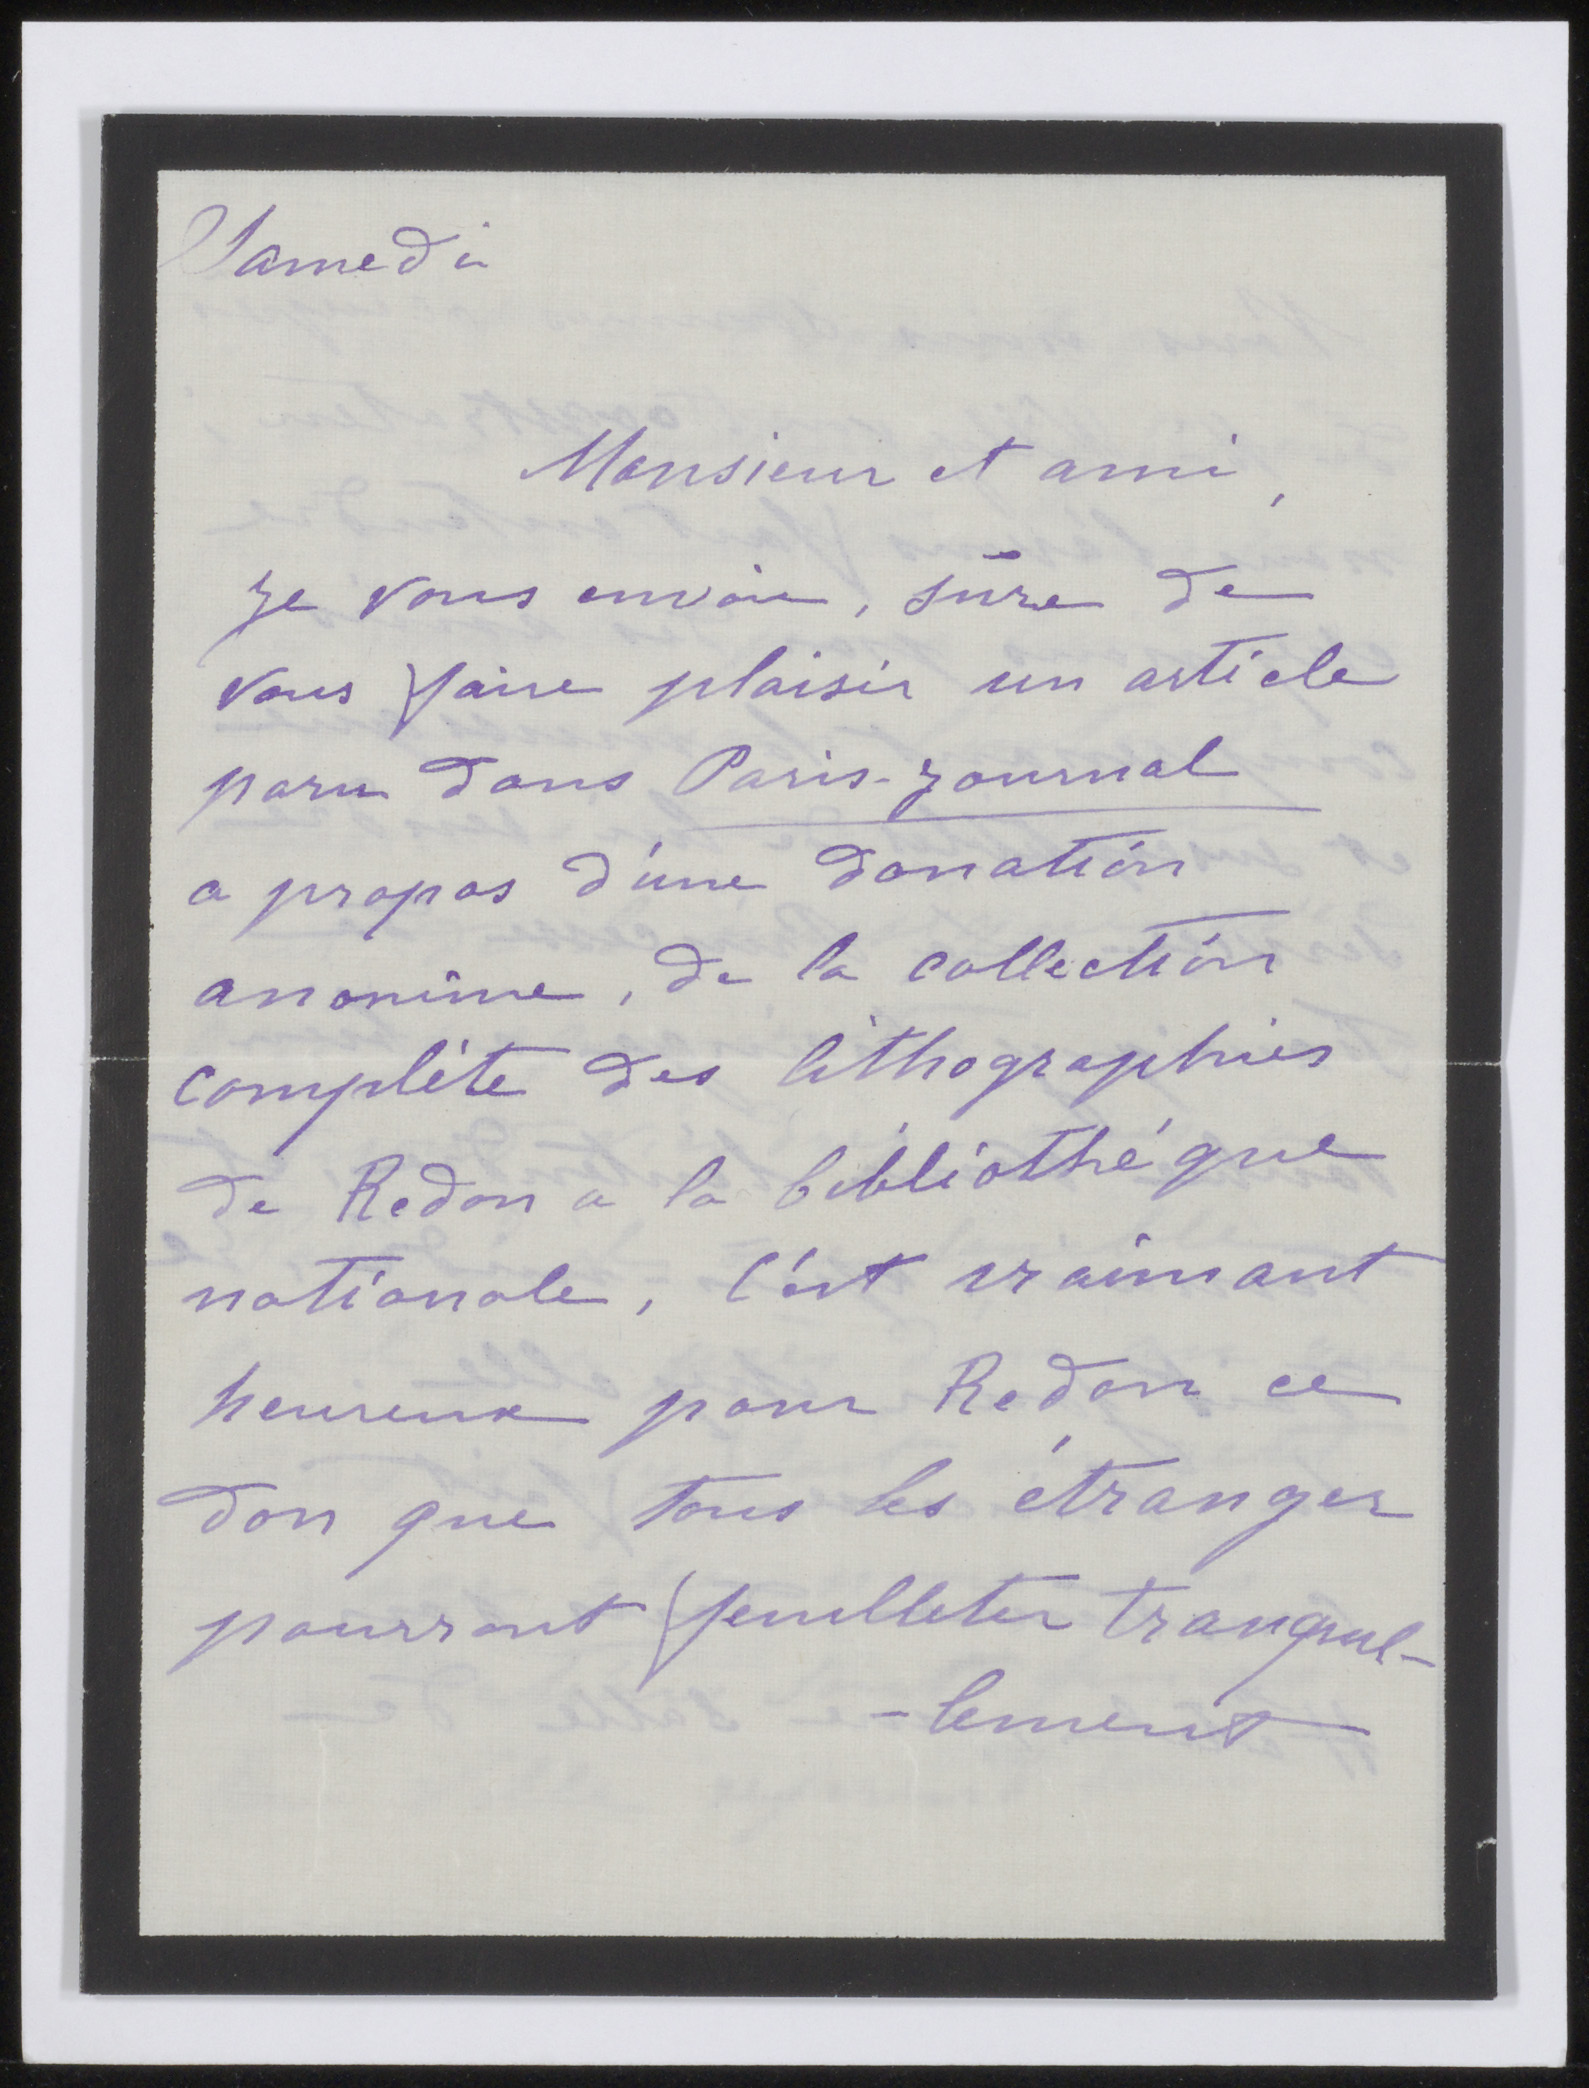 Samedi
Monsieur et ami,
je vous envoie, sûre de
vous faire plaisir un article
paru dans Paris-Journal
a propos d'une donation
anonime, de la collection
complète des lithographies
de Redon a la bibliothéque
nationale, c'est vraimant
heureux pour Redon ce
don que tous les étranger
pourront feuilleter tranquil-
-lement